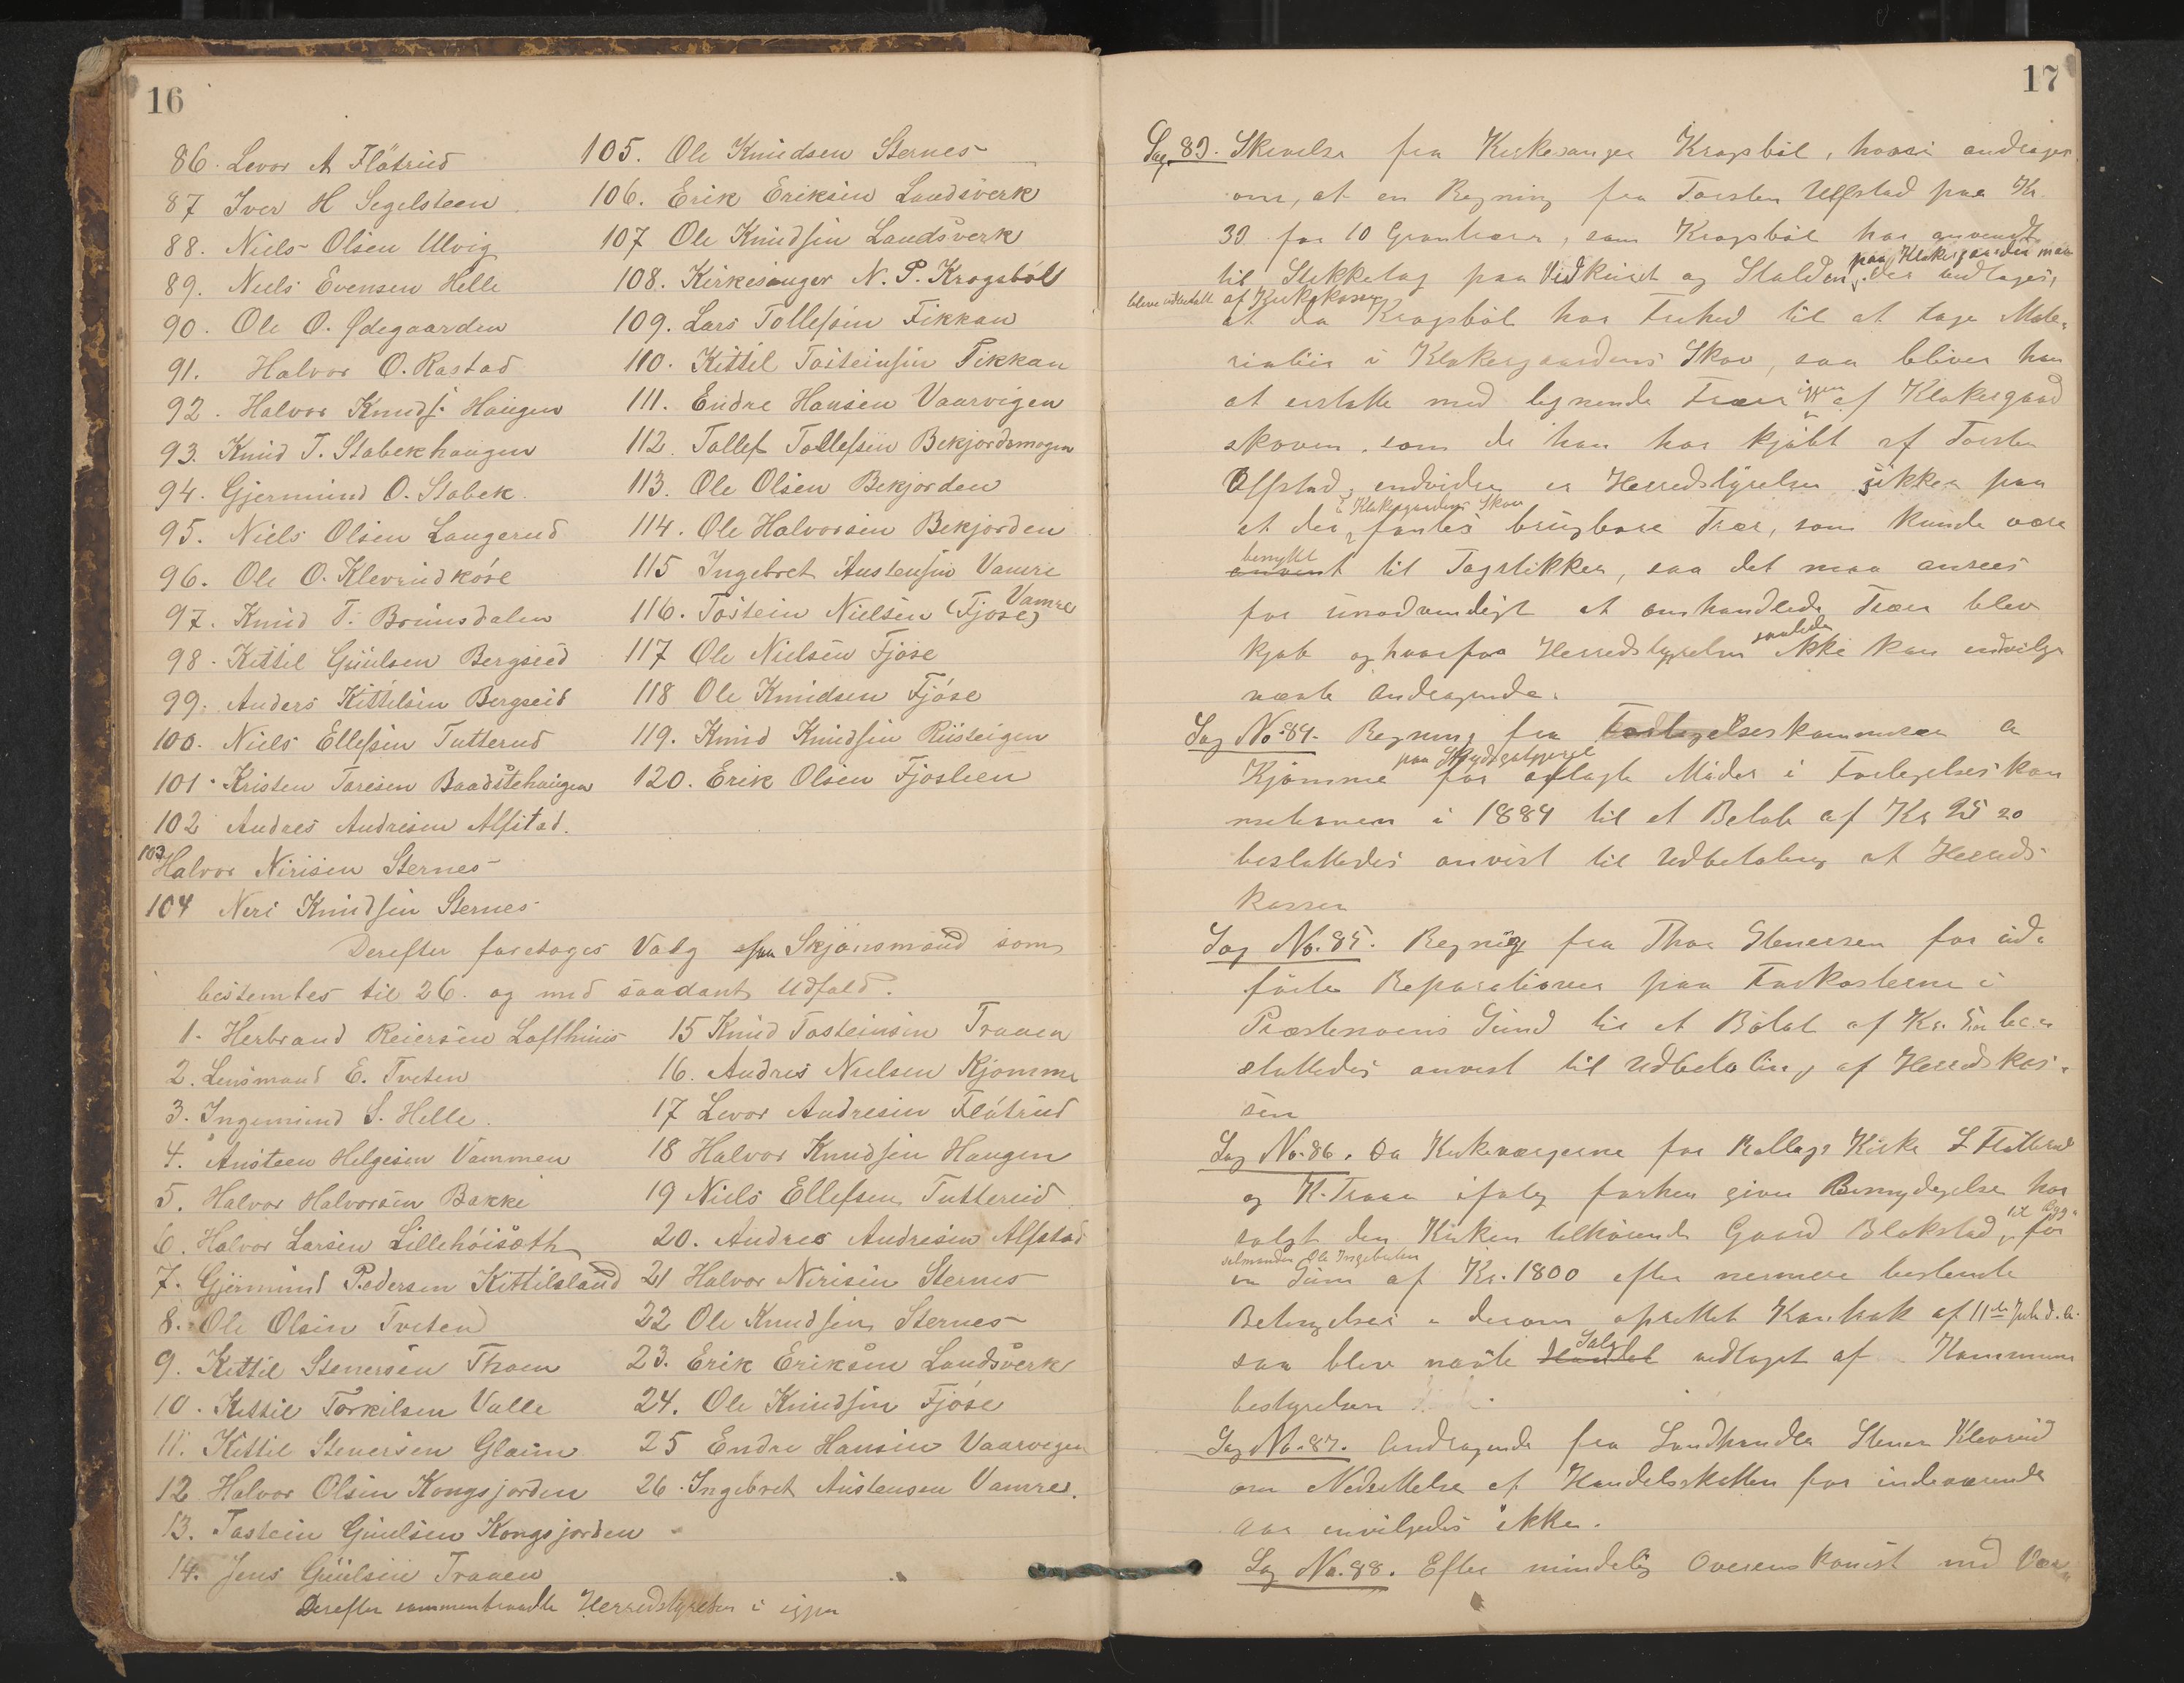 16
86. Levor A Flåtrud
87 Iver H Segelsteen
88. Niels Olsen Ulvig
89. Niels Evensen Helle
90. Ole O. Ødegaarden
91. Halvor O. Rastad
92. Halvor Knuds. Haugen
93. Knud T. Stabekhaugen
94. Gjermund O. Stabek.
95. Niels Olsen Langerud
96. Ole O. Klevrudkóse
97. Knud T. Bruunsdalen
98. Kittil Guulsen Bergseid
99. Anders Kittilsen Bergseid
100. Niels Ellefsen Tutterud
101. Kristen Taresen Baadstehaugen
102 Andres Andresen Alfstad.
103 Halvor Nirisen Sternes
104 Neri Knudsen Sternes
105. Ole Knudsen Sternes
106. Erik Eriksen Landsverk
107 Ole Knudsen Landsverk
108. Kirkesanger N. P. Krogsból
109. Lars Tollefsen Fikkan
110. Kittil Tosteinsen Fikkan
111. Endre Hansen Vaarvigen
112. Tallef Tollefsen Bekjordsmogen
113. Ole Olsen Bekjorden
114. Ole Halvorsen Bekjorden
115 Ingebret Austensen Vamre
116. Tostein Nielsen (Fjóse) Vamre
117 Ole Nielsen Fjóse
118 Ole Knudsen Fjóse
119. Knud Knudsen Ruusteigen
120. Erik Olsen Fjoslien
Derefter foretoges Valg paa Skjónsmænd som
bestemtes til 26. og med saadant Udfald.
1. Herbrand Reiersen Lofthuus
2. Lensmand E. Tveten
3. Ingemund S. Helle.
4. Austeen Helgesen Vammen
5. Halvor Halvorsen Bakke
6. Halvor Larsen Lillehóisæth
7. Gjermund Pedersen Kittilsland
8. Ole Olsen Tveten
9. Kittil Stenersen Thoen
10. Kittil Torkilsen Valle
11. Kittil Stenersen Glaim
12 Halvor Olsen Kongsjorden
13. Tostein Guulsen Kongsjorden
14. Jens Guulsen Traaen
15 Knud Tosteinsen Traaen
16. Andres Nielsen Kjómme
17 Levor Andresen Flåtrud
18 Halvor Knudsen Haugen
19 Niels Ellefsen Tutterud
20. Andres Andresen Alfstad
21 Halvor Nirisen Sternes
22 Ole Knudsen Sternes
23. Erik Eriksen Landsverk
24. Ole Knudsen Fjóse
25 Endre Hansen Vaarvigen
26. Ingebret Austensen Vamre.
Derefter sammentraadte Herredstyrelsen i igjen
17
Sag 83. Skrivelse fra Kirkesanger Krogsból, hvori andrages
om, at en Regning fra Torsten Ulfstad paa Kr.
30 for 10 Grantrær, som Krogsból har anvendt
til Stikketag paa Vedskuret og Stalden paa Klokkergaarden maa
blive udbetalt af Kirkekassen, der vedtages,
at da Krogsból har Frihed til at tage Mate-
rialier i Klokergaardens Skov, saa bliver han
at erstatte med lignende Træer igjen af Klokergaard
skoven, som de han har kjóbt af Torsten
Olfstad, endvidere er Herredstyrelsen sikker paa
at der i Klokergaardens Skov fantes brugbare Trær, som kunde være
benyttet til Tagstikker, saa det maa ansees
for unódvendigt at omhandlede Træer blev
kjóbt og hvorfor Herredstyrelsen saaledes ikke kan indvilge
nævnte Andragende.
Sag No. 84. Regning fra Forligelseskommissær A
Kjómme paa Skydsgodtgjørelse for aflagte Móder i Forligelseskom
missionen i 1884 til et Belób af Kr 25 20
besluttedes anvist til Udbetaling af Herreds
kassen
Sag No. 85. Regning fra Thor Stenersen for ud-
fórte Reparationer paa Farkosterne i
Præstemoens Sund til et Belób af Kr. 5 be-
sluttedes anvist til Udbetaling af Herredskas-
sen
Sag No. 86. Da Kirkeværgerne for Rollags Kirke L Flåtterud
og K. Traaen ifólge forhen given Bemyndigelse har
solgt den Kirken tilhórende Gaard Blakstad, til Byg-
selmanden Ole Ingebretsen for
en Sum af Kr. 1800 efter nermere bestemte
Betingelser i derom oprettet Kontrakt af 11te Juli d. A.
saa blev nævnte Salg vedtaget af Kommune
bestyrelsen
Sag No. 87. Andragende fra Landhandler Stener Klevrud
om Nedsettelse af Handelsskatten for indeværende
Aar invilgedes ikke.
Sag No. 88. Efter mindelig Overenskomst med Vær-